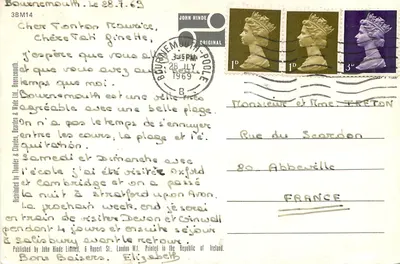 Bournemouth, le 28.7.69
3BM14
Cher Tonton Maurice,
Chère Tati Ginette,
J'espère que vous all
et que vous avez au
temps que moi.
Bournemouth est une ville très
agréable avec une belle plage.
On n'a pas le temps de s'ennuyer
entre les cours, la plage et l'é-
quitation.
Samedi et Dimanche avec
l'école j'ai été visiter Oxford
et Cambridge et on a passé
la nuit à Stratford upon Avon.
La prochain week.end je serai
en train de visiter Devon et Cornwall
pendant 4 jours et ensuite séjour
à Salisbury avant le retour.
Bons Baisers. Elizabeth
Published by John Hinde Limited, 6 Regent St., London W.1. Printed in the Republic of Ireland.
JOHN HINDE
ORIGINAL
BOURNEMOUTH-POOLE
28 JLY
1969
B
1D
1D
3D
Monsieur et Mme TRETON
Rue du Scardon
80 Abbeville
FRANCE